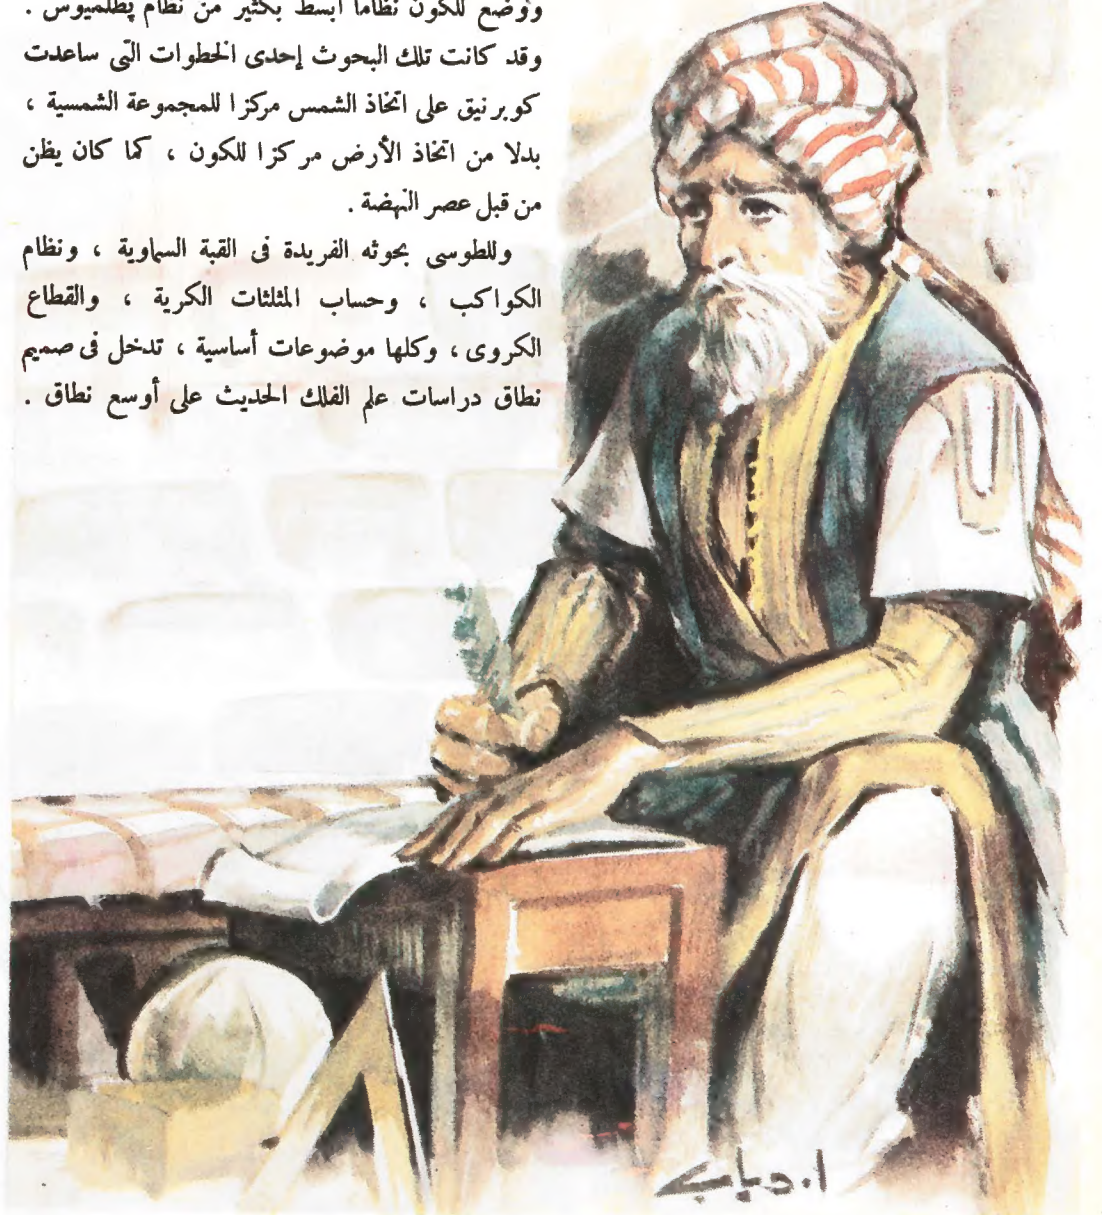 ووضع للكون نظاما أبسط بكثير من نظام بطلميوس .
وقد كانت تلك البحوث إحدى الخطوات التى ساعدت
كوبرنيق على اتخاذ الشمس مركزا للمجموعة الشمسية ،
بدلا من اتخاذ الأرض مركزا للكون ، كما كان يظن
من قبل عصر النهضة .
وللطوسى بحوثه الفريدة فى القبة السماوية ، ونظام
الكواكب ، وحساب المثلثات الكرية ، والقطاع
الكروى ، وكلها موضوعات أساسية ، تدخل فى صميم
نطاق دراسات علم الفلك الحديث على أوسع نطاق .
ا. دياب